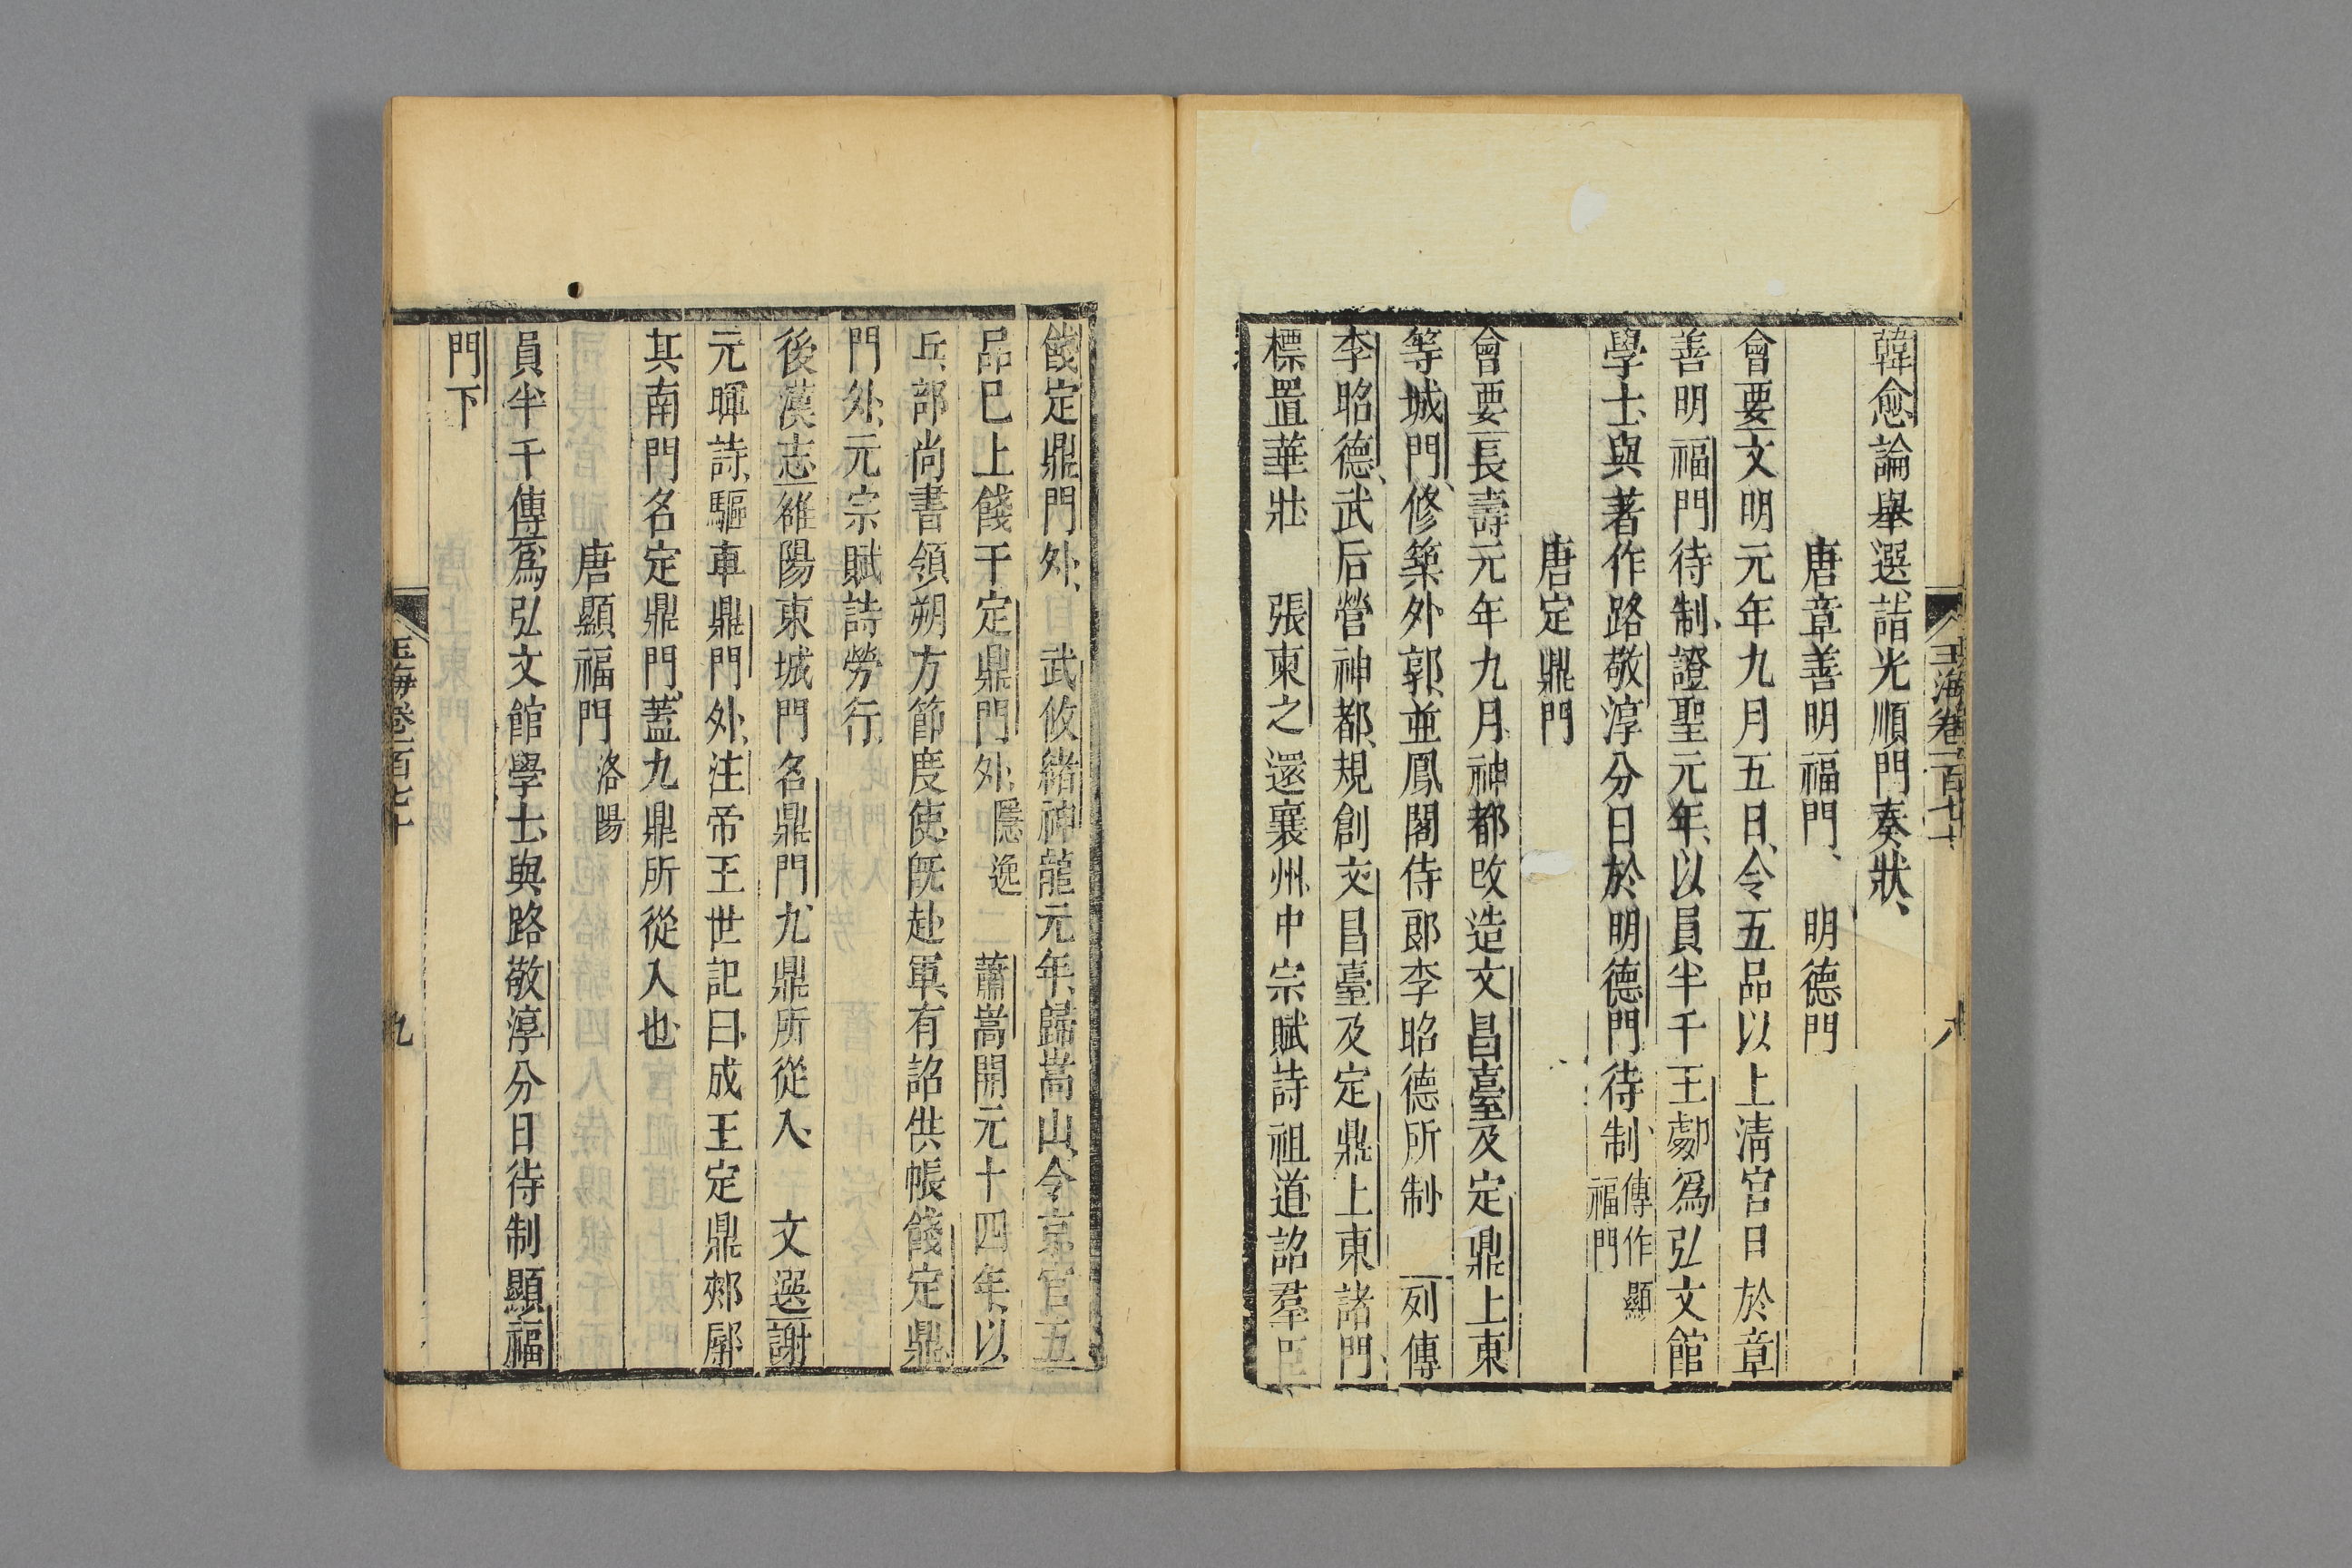 玉海卷一百七十
八
韓愈論舉選詣光順門奏狀
唐章善明福門　明德門
會要文明元年九月五日令五品以上淸官日於章
善明福門待制證聖元年以員半千王勮爲弘文館
學士與著作路敬淳分日於明德門待制傳作顯福門
唐定鼎門
會要長壽元年九月神都改造文昌臺及定鼎上東
等城門修築外郭並鳳閣侍郞李昭德所制　列傳
李昭德武后營神都規創文昌臺及定鼎上東諸門
標置華壯　張柬之還襄州中宗賦詩祖道詔羣臣
餞定鼎門外　武攸緒神龍元年歸嵩山令京官五
品已上餞于定鼎門外隱逸　蕭嵩開元十四年以
兵部尚書領朔方節度使旣赴軍有詔供帳餞定鼎
門外元宗賦詩勞行
後漢志雒陽東城門名鼎門九鼎所從入　文選謝
元暉詩驅車鼎門外注帝王世記曰成王定鼎郟鄏
其南門名定鼎門蓋九鼎所從入也
唐顯福門洛陽
員半千傳爲弘文館學士與路敬淳分日待制顯福
門下
玉海卷一百七十
九